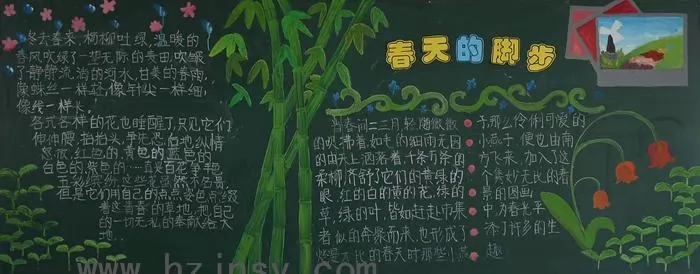 冬去春来,杨柳吐绿,温暖的
春风吹绿了一望无际的农田,吹皱
了静静流淌的河水,甘美的春雨,
像蛛丝一样轻,像针尖一样细,
像线一样长,
各式各样的花也睡醒了,只见它们
伸伸腰,抬抬头,争先恐后地纵情
怒放,红色的,黄色的,蓝色的
白色的,紫色的
但是它们用自己的点点姿色点缀
着这青春的草地,把自己
的一切无私的奉献给大
地。
春天的脚步
青春间二三月,轻随微微
的吹拂着,如毛的细雨无因
的由天上洒落着,千条万条的
柔柳,齐舒了它们的黄绿的
眼,红的白的黄的花,绿的
草,绿的叶,皆如赶赴市集
者似的奔聚而来,也形成了
烂漫无比的春天时那些小燕
子,那么伶俐可爱的
小燕子,便也由南
方飞来,加入了这
个隽妙无比的春
景的图画
中,为春光平
添了许多的生
趣
www.hzjnsy.com